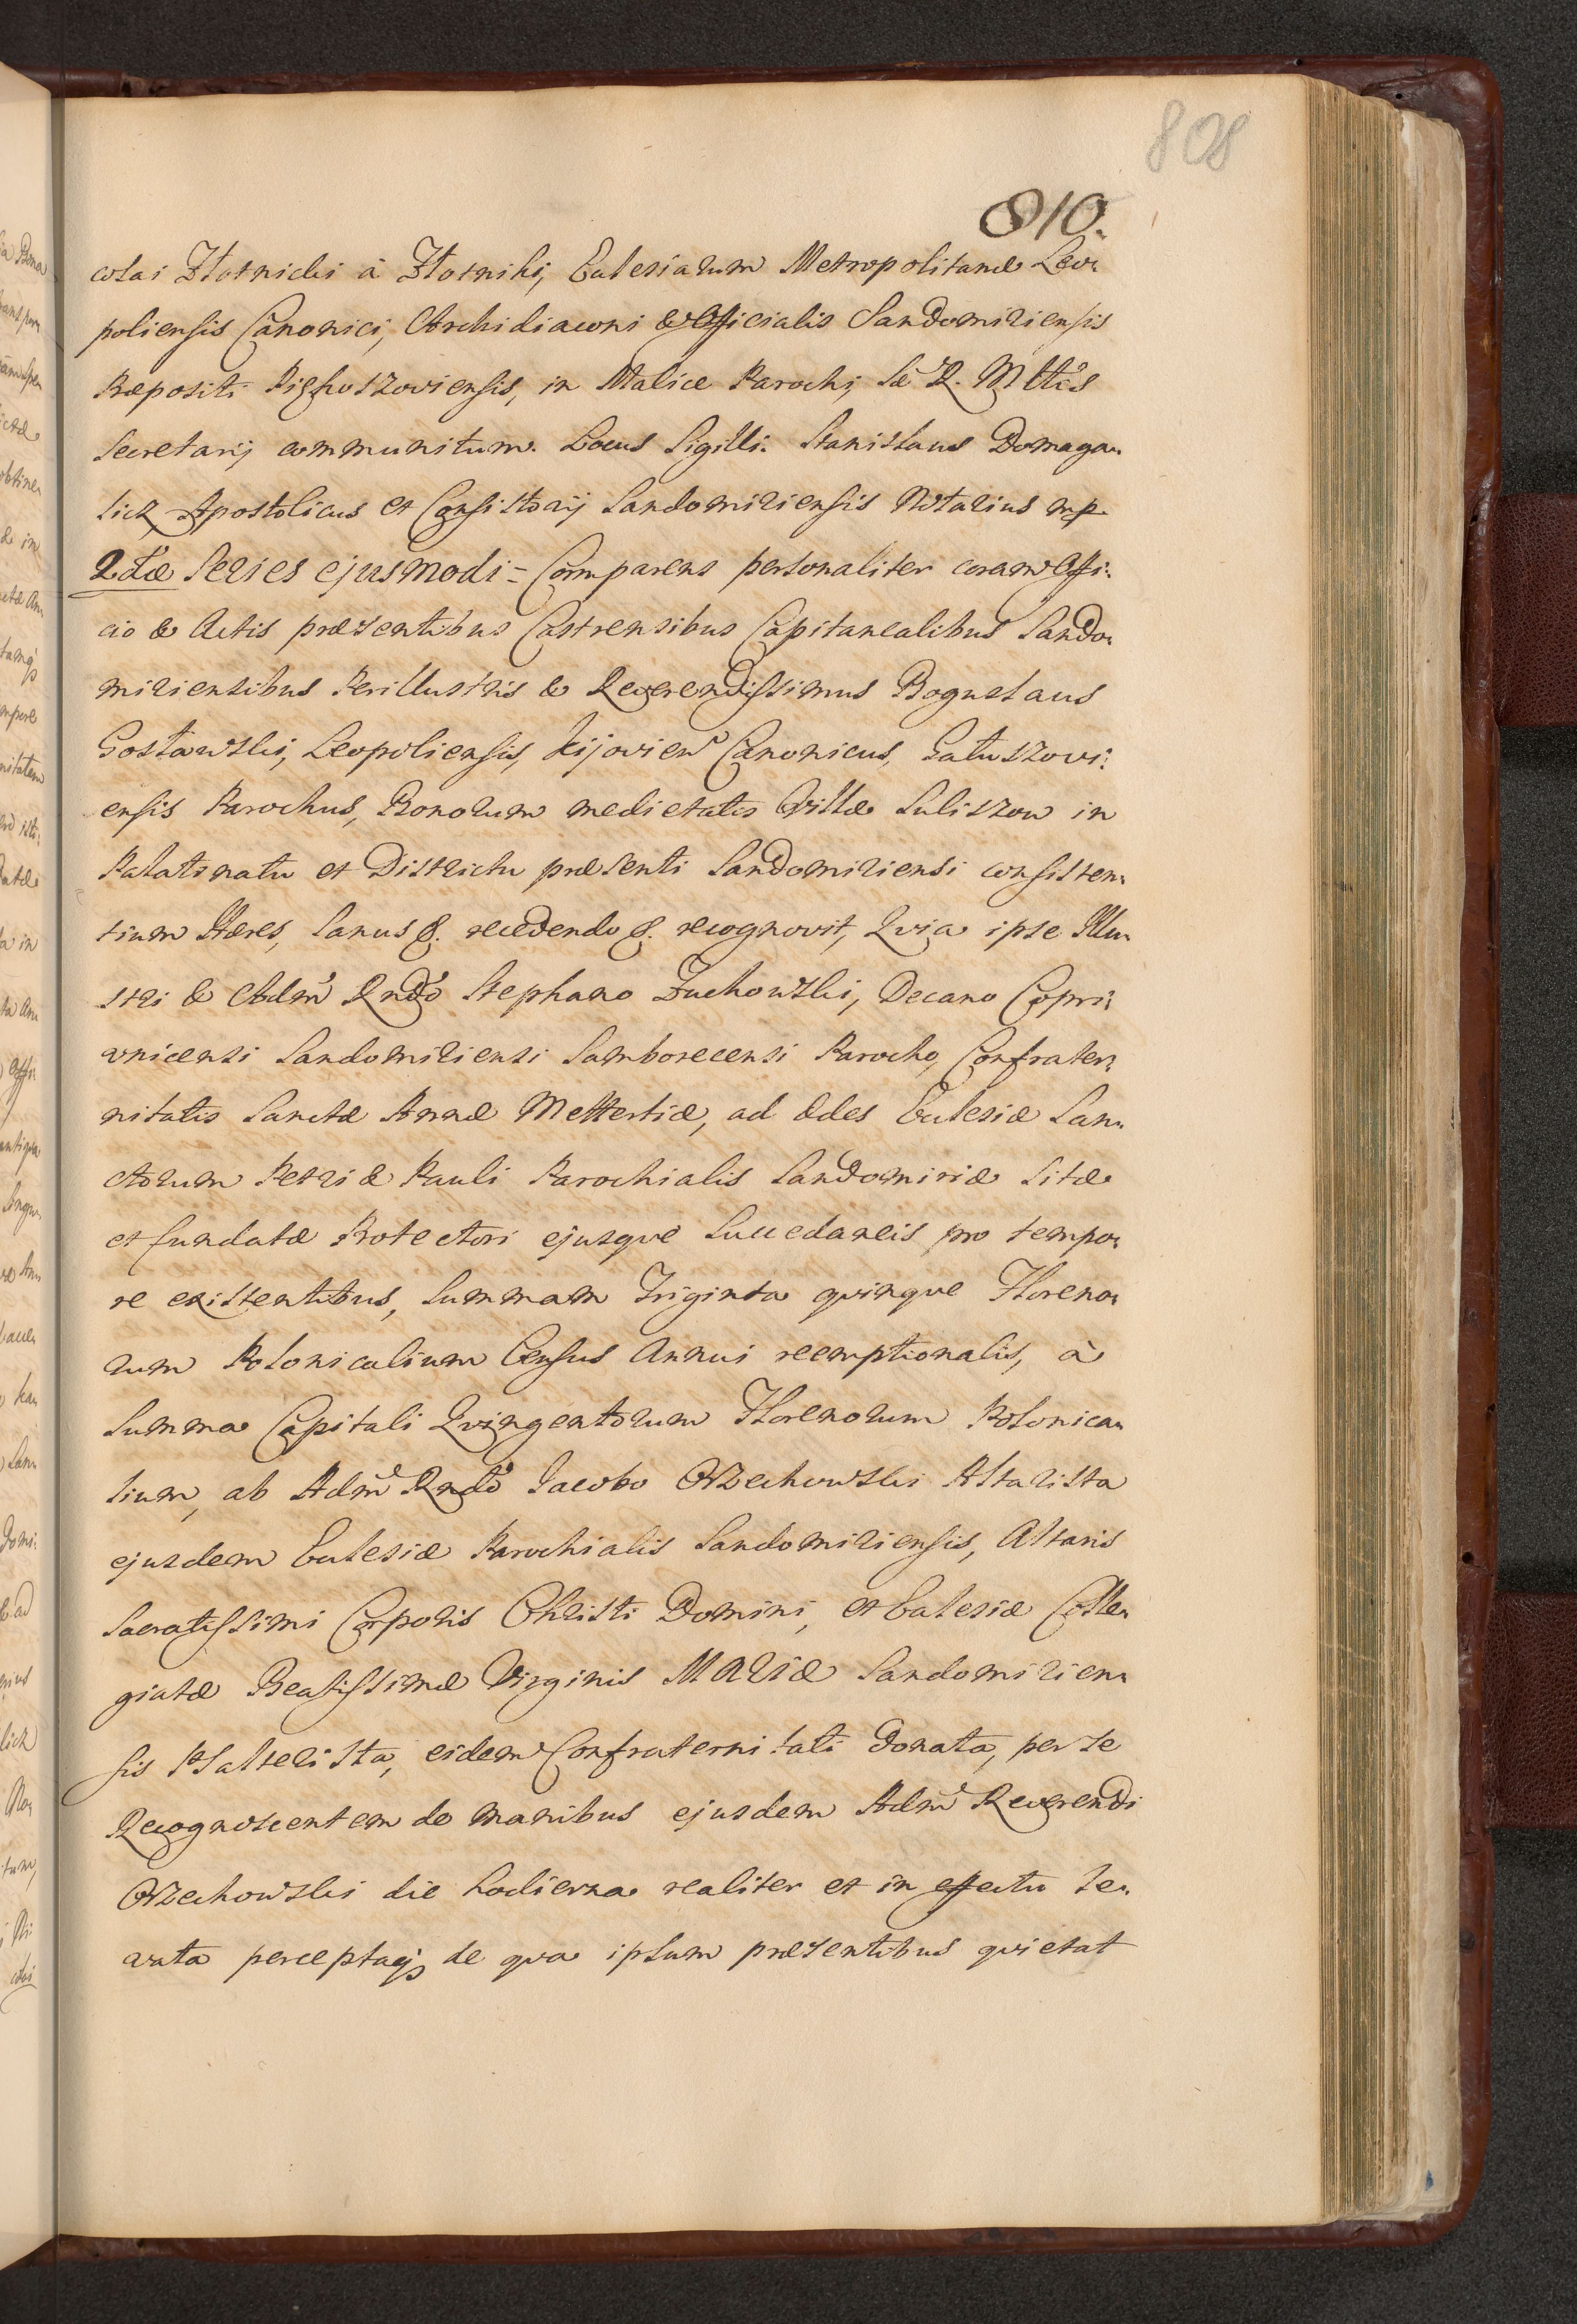 808
810.
colai Złotnicki á Złotniki, Ecclesiarum Metropolitanæ Leo:
poliensis Canonici, Archidiaconi & Officialis Sandomiriensis
Præpositi Rzchoszoviensis, in Malice Parochi, Sæ R. Mttis
Secretarij communitum. Locus Sigilli. Stanislaus Domaga:
licz Apostolicus et Consistorij Sandomiriensis Notarius mp
2dæ Series ejusmodi = Comparens personaliter coram Offi:
cio & Actis præsentibus Castrensibus Capitanealibus Sando:
miriensibus Perillustris & Reverendissimus Boguslaus
Gosławski, Leopoliensis, Kijovien Canonicus, Gałuszovi:
ensis Parochus, Bonorum medietatis Villæ Suliszow in
Palatinatu et Districtu præsenti Sandomiriensi consisten:
tium Hæres, Sanus &. recedendo &. recognovit, Qvia ipse Illu:
stri & Adm Rndo Stephano Żuchowski, Decano Copri:
vnicensi Sandomiriensi Samborecensi Parocho, Confrater:
nitatis Sanctæ Annæ Mettertiæ, ad ædes Ecclesiæ San:
ctorum Petri & Pauli Parochialis Sandomiriæ Sitæ
et fundatæ Protectori ejusqve Succedaneis pro tempo:
re existentibus, Summam Triginta qvinqve Floreno:
rum Polonicalium Census Annui reemptionalis, à
Summa Capitali Qvingentorum Florenorum Polonica:
lium, ab Adm Rndo Jacobo Orzechowski Altarista
ejusdem Ecclesiæ Parochialis Sandomiriensis, Altaris
Sacratissimi Corporis Christi Domini, et Ecclesiæ Colle:
giatæ Beatissimæ Virginis MARIÆ Sandomirien:
sis Psalterista, eidem Confraternitati donata, per se
Recognoscentem de manibus ejusdem Adm Reverendi
Orzechowski die hodierna realiter et in effectu le:
vata perceptaq de qva ipsum præsentibus qvietat